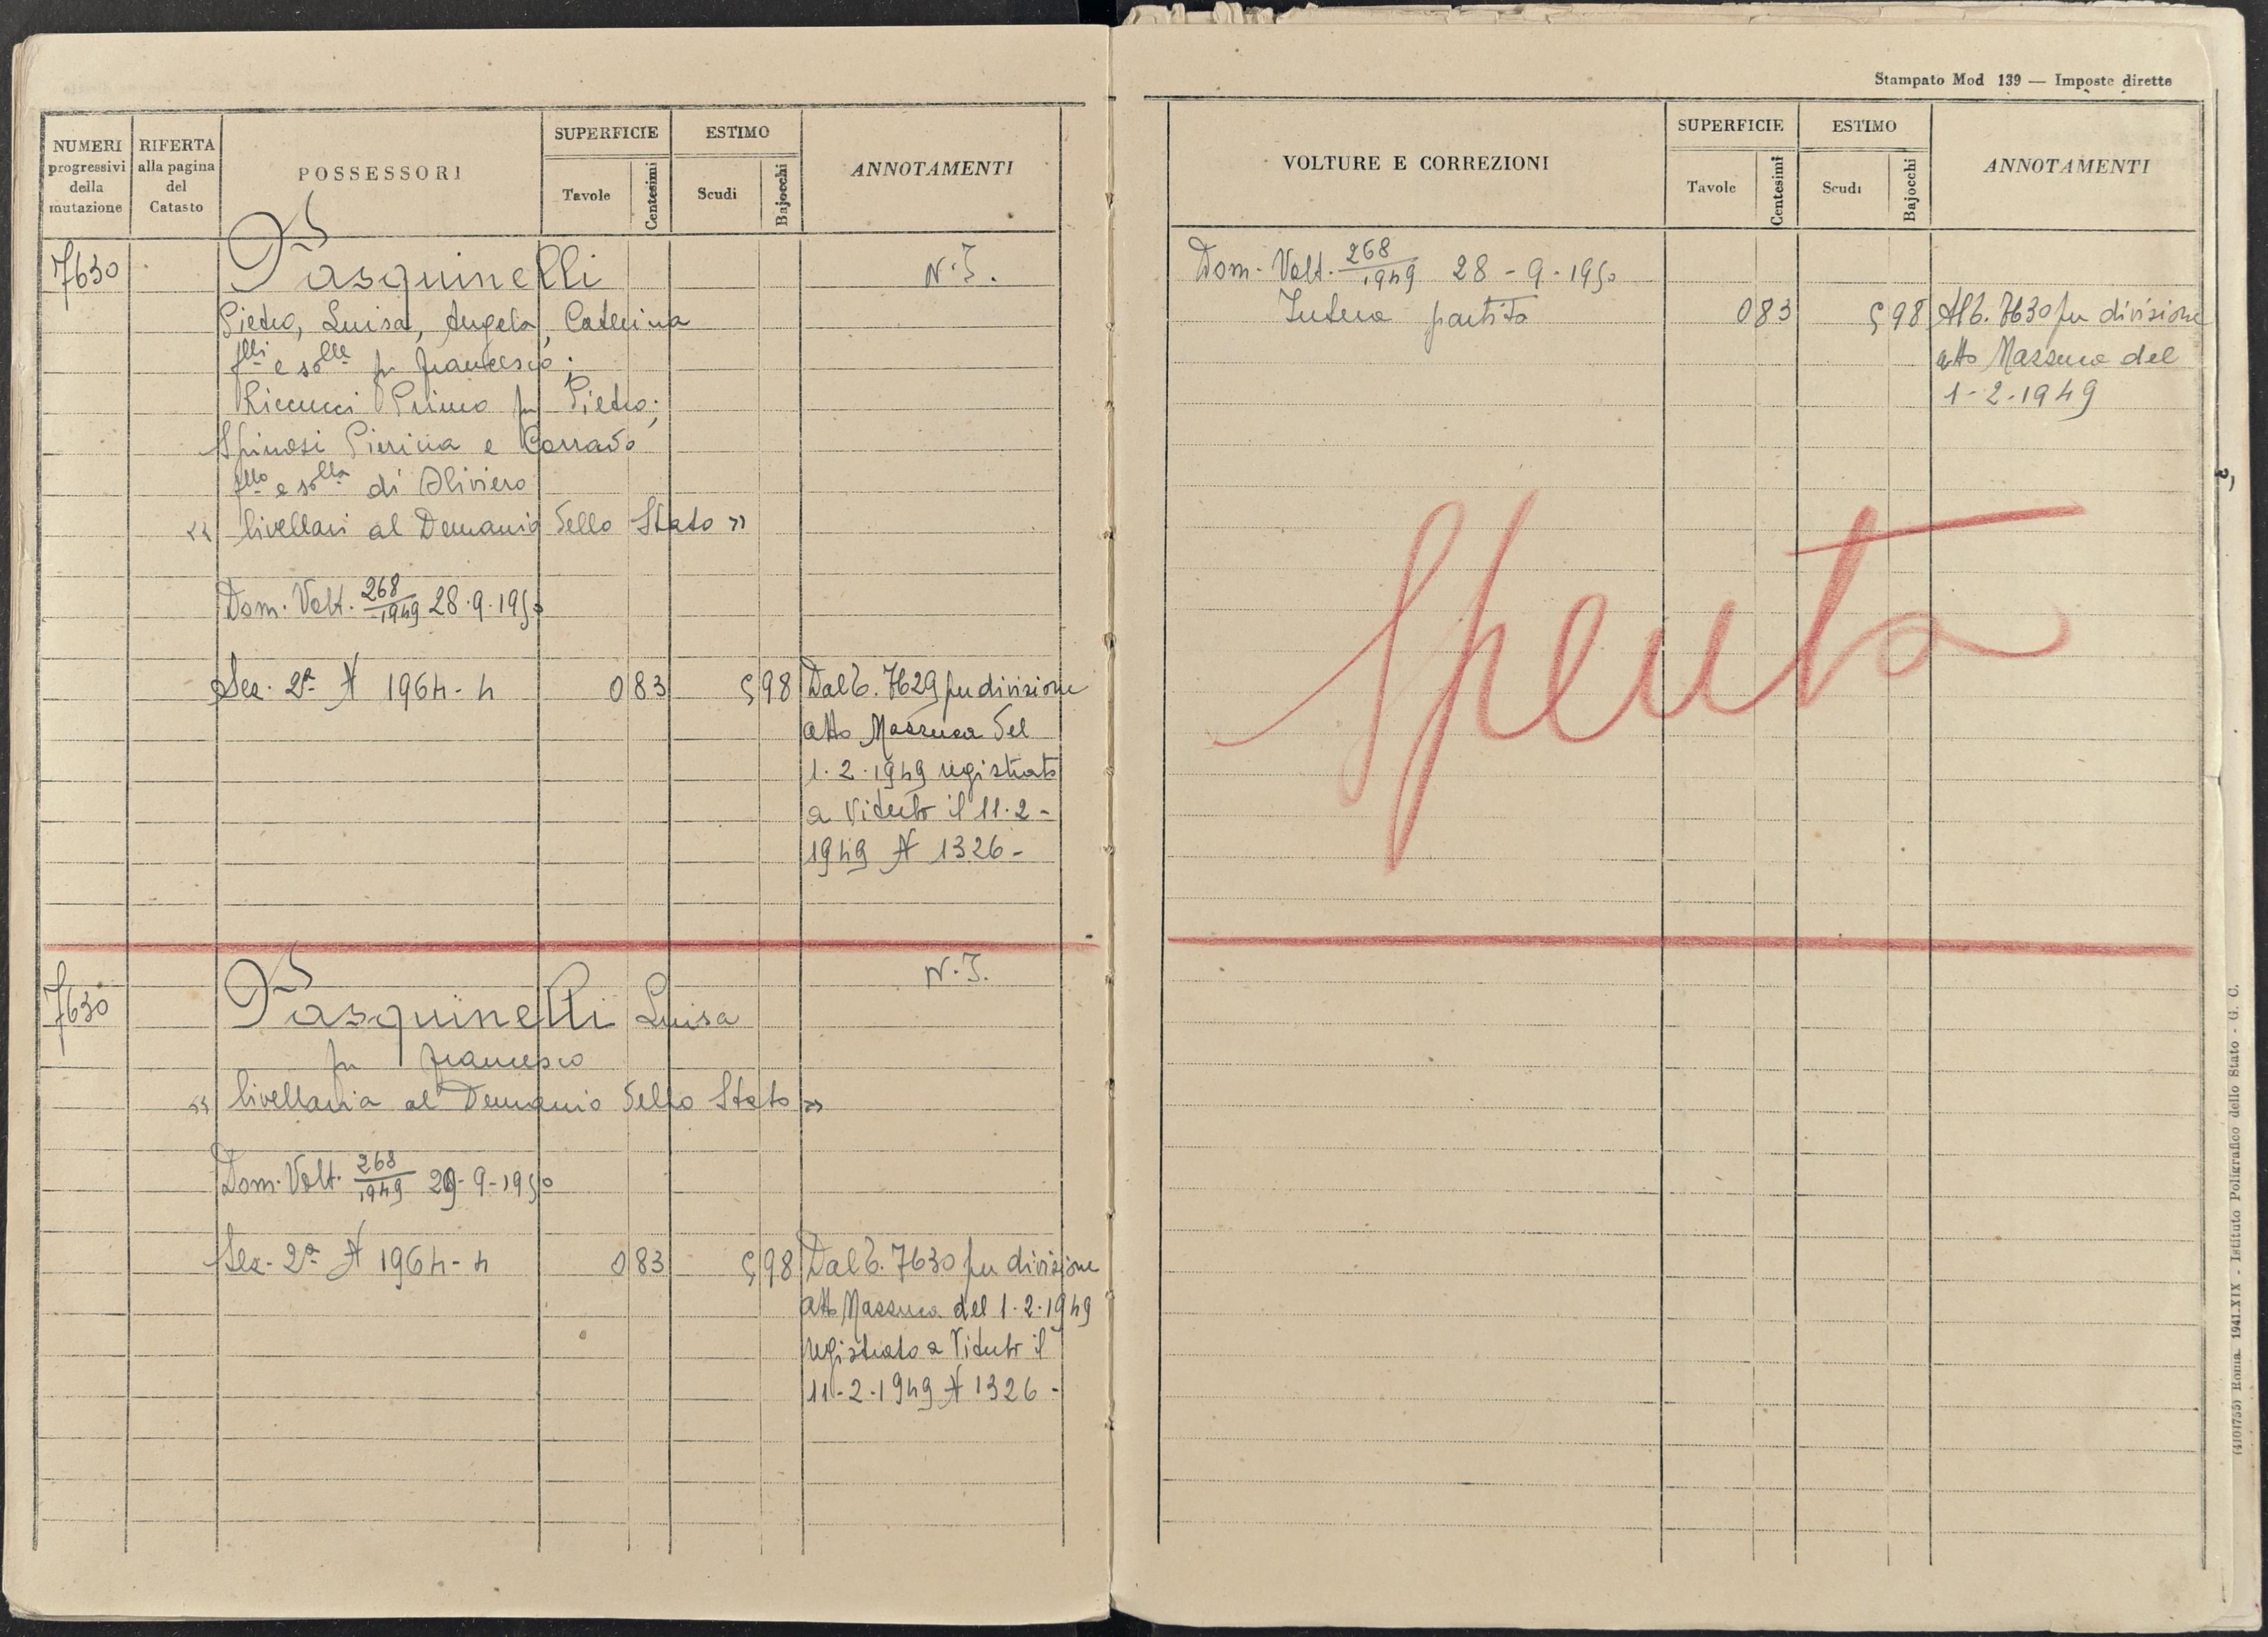 NUMERI progressivi della mutazione
RIFERTA alla pagina del Catasto
POSSESSORI
SUPERFICIE
Tavole
Centesimi
ESTIMO
Scudi
Bajocchi
ANNOTAMENTI
7630
Pasquinelli
N. I.
Pietro, Luisa, Angela, Caterina
flli e solle fu Francesco;
Riccucci Primo fu Pietro;
Spinosi Pierina e Corrado
fllo e solla di Oliviero
« livellari al Demanio dello Stato »
Dom. Volt. 268/1949 28.9.1950
Sez. 2ª N 1964-4 0 83 5 98 Dal 6. 7629 per divisione
atto Mazzuca del
1.2.1949 registrato
a Viterbo il 11.2-
1949 N 1326-
7630
Pasquinelli Luisa
N. I.
fu Francesco
« livellaria al Demanio dello Stato »
Dom. Volt. 268/1949 29-9-1950
Sez. 2ª N 1964-4 0 83 5 98 Dal 6. 7630 per divisione
atto Mazzuca del 1.2.1949
registrato a Viterbo il
11-2-1949 N 1326-
Stampato Mod 139 — Imposte dirette
VOLTURE E CORREZIONI
SUPERFICIE
Tavole
Centesimi
ESTIMO
Scudi
Bajocchi
ANNOTAMENTI
Dom. Volt. 268/1949 28-9-1950
Intera partita 0 83 5 98 Al 6. 7630 per divisione
atto Mazzuca del
1-2-1949
Spenta
(4101755) Roma, 1941-XIX - Istituto Poligrafico dello Stato - G. C.